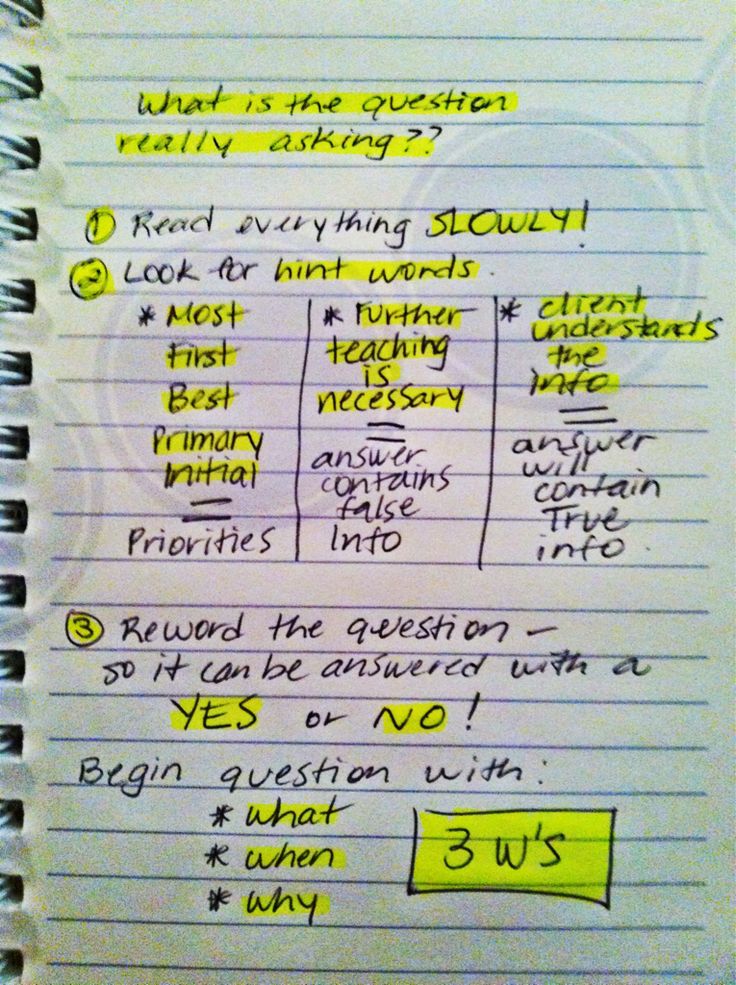 What is the question
really asking??
① Read everything SLOWLY!
② Look for hint words.
* Most
First
Best
Primary
Initial
=
Priorities
* Further
teaching
is
necessary
=
answer
contains
false
Info
* client
understands
the
info
=
answer
will
contain
True
info.
③ Reword the question –
so it can be answered with a
YES or NO!
Begin question with:
* what
* when
* why
3 W's